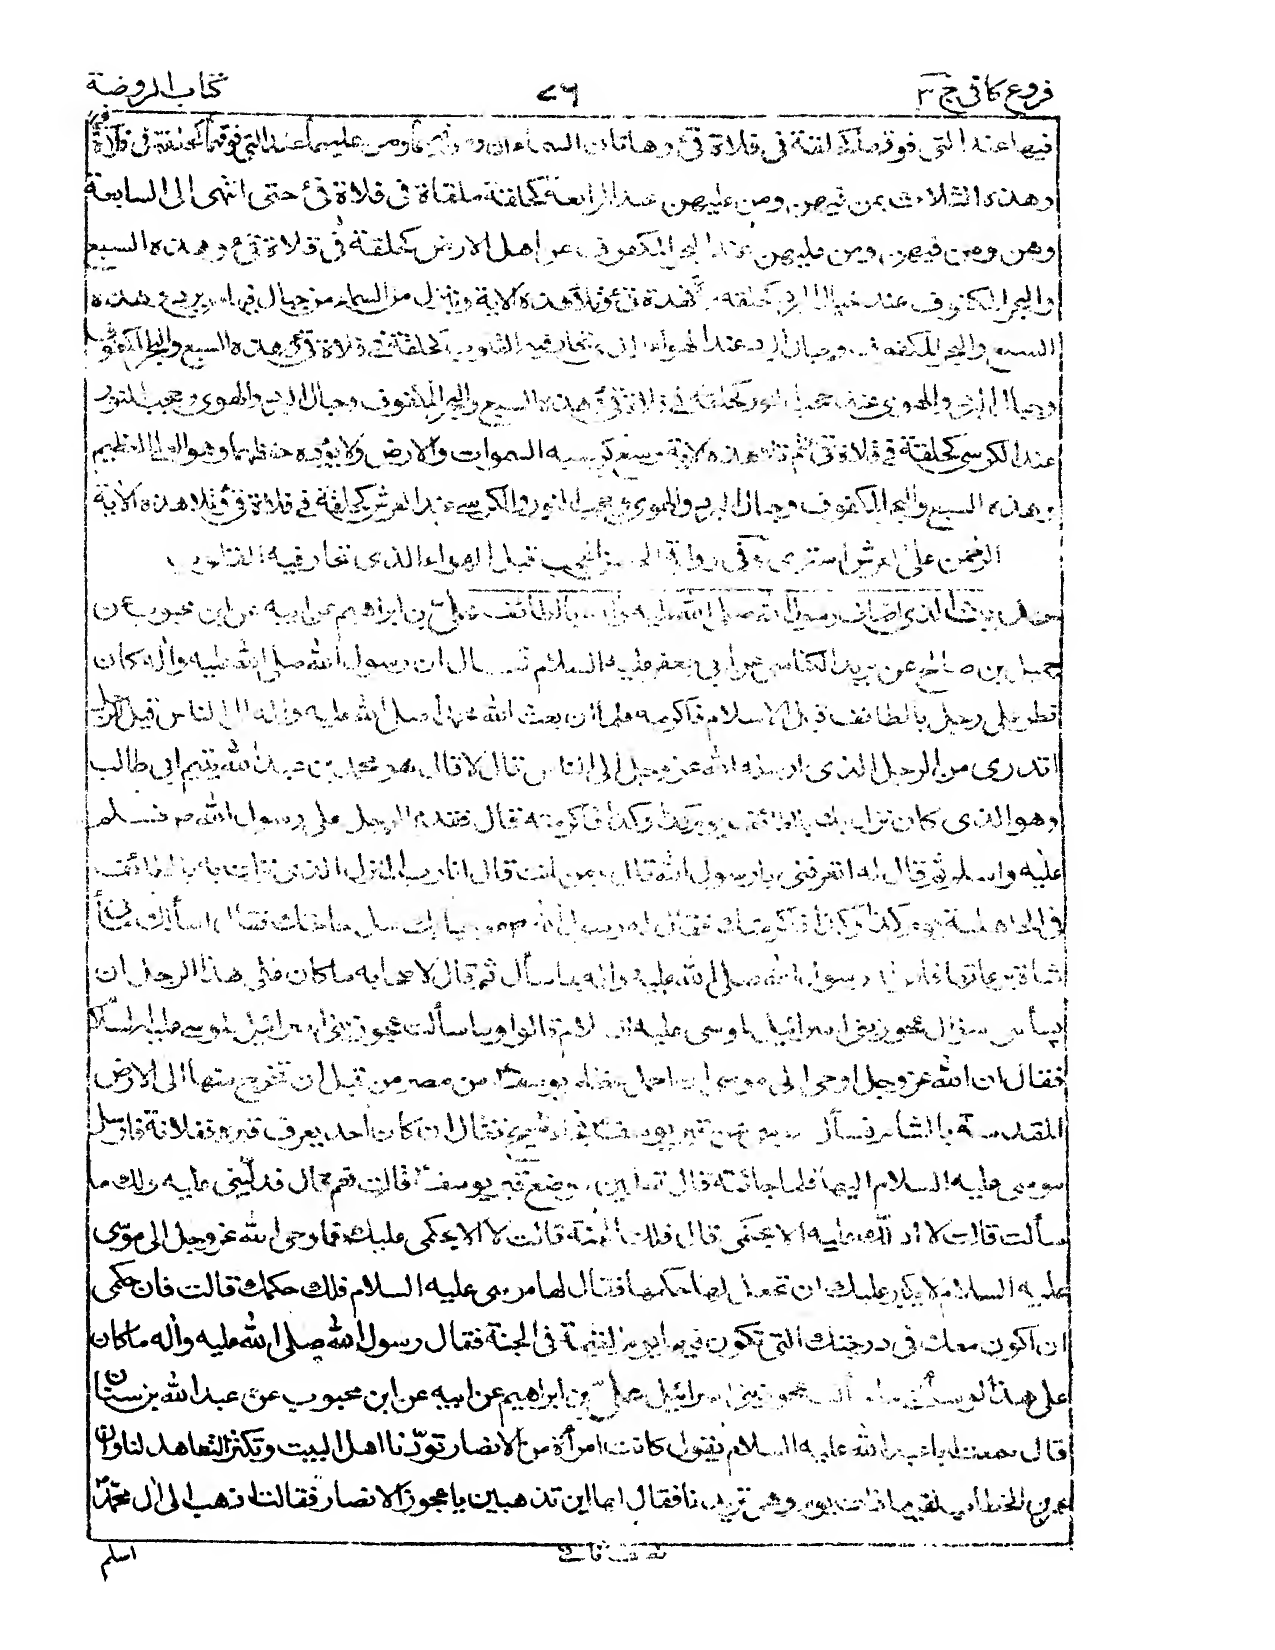 فروع كافى ج ٣ ٧٦ كتاب الروضة
فيها عند التى فوقها كحلقة فى فلاة قى وهاتان السماءان ومن فيهما ومن عليهما عند التى فوقهما كحلقة فى فلاة قى
وهذه الثلاث بمن فيهن ومن عليهن عند الرابعة كحلقة ملقاة فى فلاة قى حتى انتهى الى السابعة
وهن ومن فيهن ومن عليهن عند البحر المكفوف عن اهل الارض كحلقة فى فلاة قى وهذه السبع
والبحر المكفوف عند جبال البرد كحلقة فى فلاة قى وتلا هذه الاية وينزل من السماء من جبال فيها من برد وهذه
السبع والبحر المكفوف وجبال البرد عند الهواء الذى تحار فيه القلوب كحلقة فى فلاة قى وهذه السبع والبحر المكفوف
وجبال البرد والهوى عند حجب النور كحلقة فى فلاة قى وهذه السبع والبحر المكفوف وجبال البرد والهوى وحجب النور
عند الكرسى كحلقة فى فلاة قى ثم تلا هذه الاية وسع كرسيه السموات والارض ولا يؤده حفظهما وهو العلى العظيم
وهذه السبع والبحر المكفوف وجبال البرد والهوى وحجب النور والكرسى عند العرش كحلقة فى فلاة قى وتلا هذه الاية
الرحمن على العرش استوى وفى رواية الحسن الحجب قبل الهواء الذى تحار فيه القلوب
حديث الذى اضاف رسول الله صلى الله عليه وآله بالطائف على بن ابراهيم عن ابيه عن ابن محبوب عن
جميل بن صالح عن يزيد الكناسى عن ابى جعفر عليه السلام قال ان رسول الله صلى الله عليه وآله كان
نزل على رجل بالطائف قبل الاسلام فاكرمه فلما ان بعث الله محمدا صلى الله عليه وآله الى الناس قيل للرجل
اتدرى من الرجل الذى ارسله الله عز وجل الى الناس قال لا قال هو محمد بن عبد الله يتيم ابى طالب
وهو الذى كان نزل بك بالطائف يوم كذا وكذا فاكرمته قال فقدم الرجل على رسول الله ص فسلم
عليه واسلم ثم قال له اتعرفنى يا رسول الله قال ومن انت قال انا رب المنزل الذى نزلت به بالطائف
فى الجاهلية يوم كذا وكذا فاكرمتك فقال له رسول الله مرحبا بك سل حاجتك فقال اسألك مأتى
شاة برعاتها فامر له رسول الله صلى الله عليه وآله بما سأل ثم قال لاصحابه ما كان على هذا الرجل ان
يسألنى سؤال عجوز بنى اسرائيل لموسى عليه السلام قالوا وما سألت عجوز بنى اسرائيل لموسى عليه السلام
فقال ان الله عز وجل اوحى الى موسى ان احمل عظام يوسف من مصر من قبل ان تخرج منها الى الارض
المقدسة بالشام فسأل موسى عن قبر يوسف فجاءه شيخ فقال ان كان احد يعرف قبره ففلانة فارسل
موسى عليه السلام اليها فلما جائته قال تعلمين موضع قبر يوسف قالت نعم قال فدلينى عليه ولك ما
سألت قالت لا ادلك عليه الا بحكمى قال فلك الجنة قالت لا الا بحكمى عليك فاوحى الله عز وجل الى موسى
عليه السلام لا يكبر عليك ان تجعل لها حكمها فقال لها موسى عليه السلام فلك حكمك قالت فان حكمى
ان اكون معك فى درجتك التى تكون فيها يوم القيمة فى الجنة فقال رسول الله صلى الله عليه وآله ما كان
على هذا لو سألنى ما سألت عجوز بنى اسرائيل على بن ابراهيم عن ابيه عن ابن محبوب عن عبد الله بن سنان
قال سمعت ابا عبد الله عليه السلام يقول كانت امرأة من الانصار تودنا اهل البيت وتكثر التعاهد لنا وان
عمر بن الخطاب لقيها ذات يوم وهى تريدنا فقال لها اين تذهبين يا عجوز الانصار فقالت اذهب الى آل محمد
اسلم